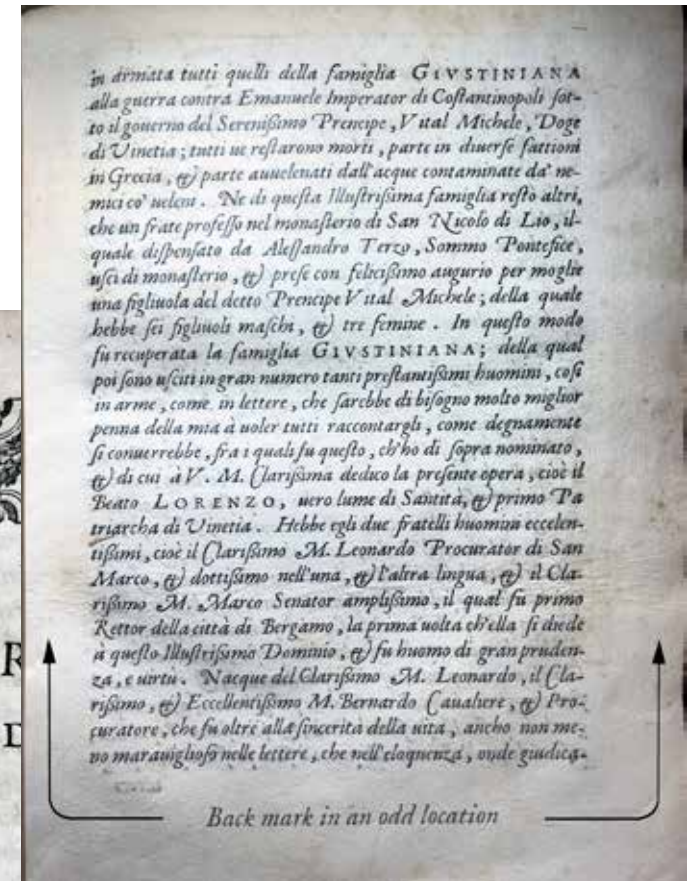 in armata tutti quelli della famiglia GIVSTINIANA
alla guerra contra Emanuele Imperator di Coſtantinopoli ſot-
to il gouerno del Sereniſsimo Prencipe, Vital Michele, Doge
di Vinetia; tutti ue reſtarono morti, parte in diuerſe fattioni
in Grecia, & parte auuelenati dall'acque contaminate da' ne-
mici co' ueleni. Ne di queſta Illuſtriſsima famiglia reſto altri,
che un frate profeſſo nel monaſterio di San Nicolo di Lio, il-
quale diſpenſato da Aleſſandro Terzo, Sommo Pontefice,
uſci di monaſterio, & preſe con feliciſsimo augurio per moglie
una figliuola del detto Prencipe Vital Michele; della quale
hebbe ſei figliuoli maſchi, & tre femine. In queſto modo
fu recuperata la famiglia GIVSTINIANA; della qual
poi ſono uſciti in gran numero tanti preſtantiſsimi huomini, coſi
in arme, come in lettere, che ſarebbe di biſogno molto miglior
penna della mia à uoler tutti raccontargli, come degnamente
ſi conuerrebbe, fra i quali fu queſto, ch'ho di ſopra nominato,
& di cui à V. M. Clariſsima dedico la preſente opera, cioè il
Beato LORENZO, uero lume di Santità, & primo Pa
triarcha di Vinetia. Hebbe egli due fratelli huomini eccelen-
tiſsimi, cioè il Clariſsimo M. Leonardo Procurator di San
Marco, & dottiſsimo nell'una, & l'altra lingua, & il Cla-
riſsimo M. Marco Senator ampliſsimo, il qual fu primo
Rettor della città di Bergamo, la prima uolta ch'ella ſi diede
à queſto Illuſtriſsimo Dominio, & fu huomo di gran pruden-
za, e uirtu. Nacque del Clariſsimo M. Leonardo, il Cla-
riſsimo, & Eccellentiſsimo M. Bernardo Caualiere, & Pro-
curatore, che fu oltre alla ſincerita della uita, ancho non me-
no marauiglioſo nelle lettere, che nell'eloquenza, onde giudica-
Back mark in an odd location
R
D